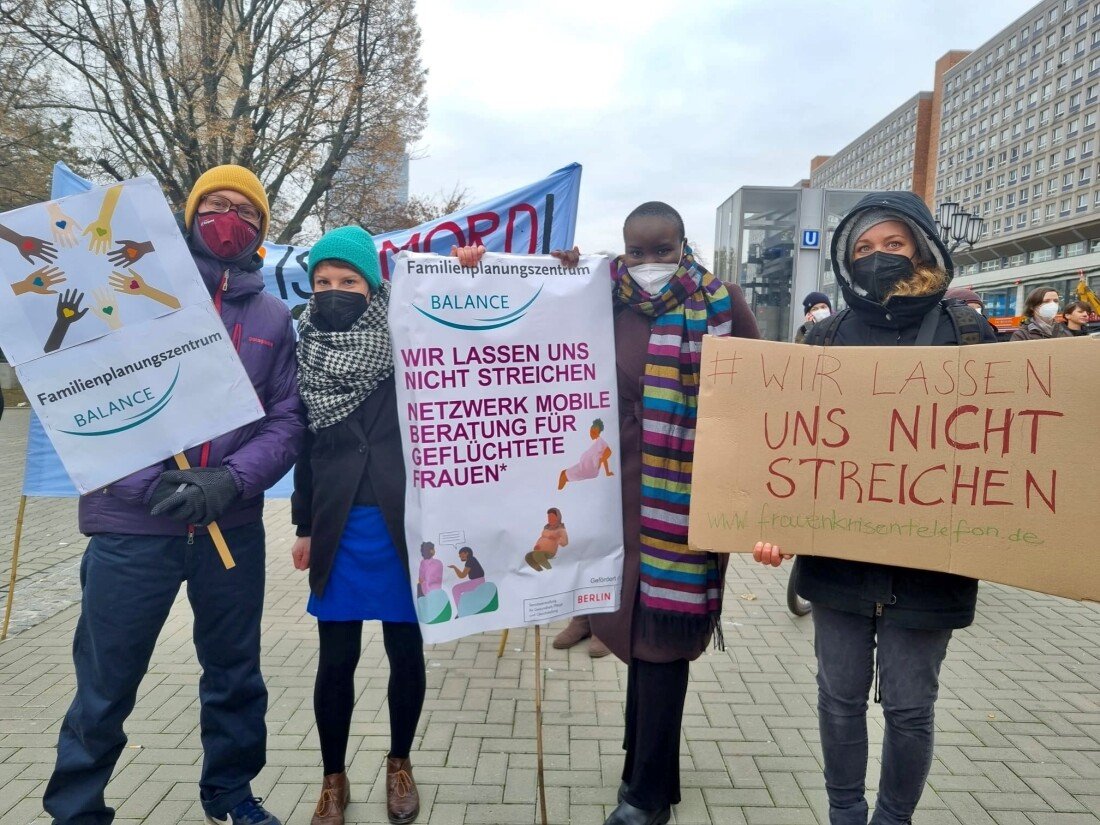 Familienplanungszentrum
BALANCE
MORD!
Familienplanungszentrum
BALANCE
WIR LASSEN UNS
NICHT STREICHEN
NETZWERK MOBILE
BERATUNG FÜR
GEFLÜCHTETE
FRAUEN*
Gefördert
BERLIN
U
# WIR LASSEN
UNS NICHT
STREICHEN
www.frauenkrisentelefon.de